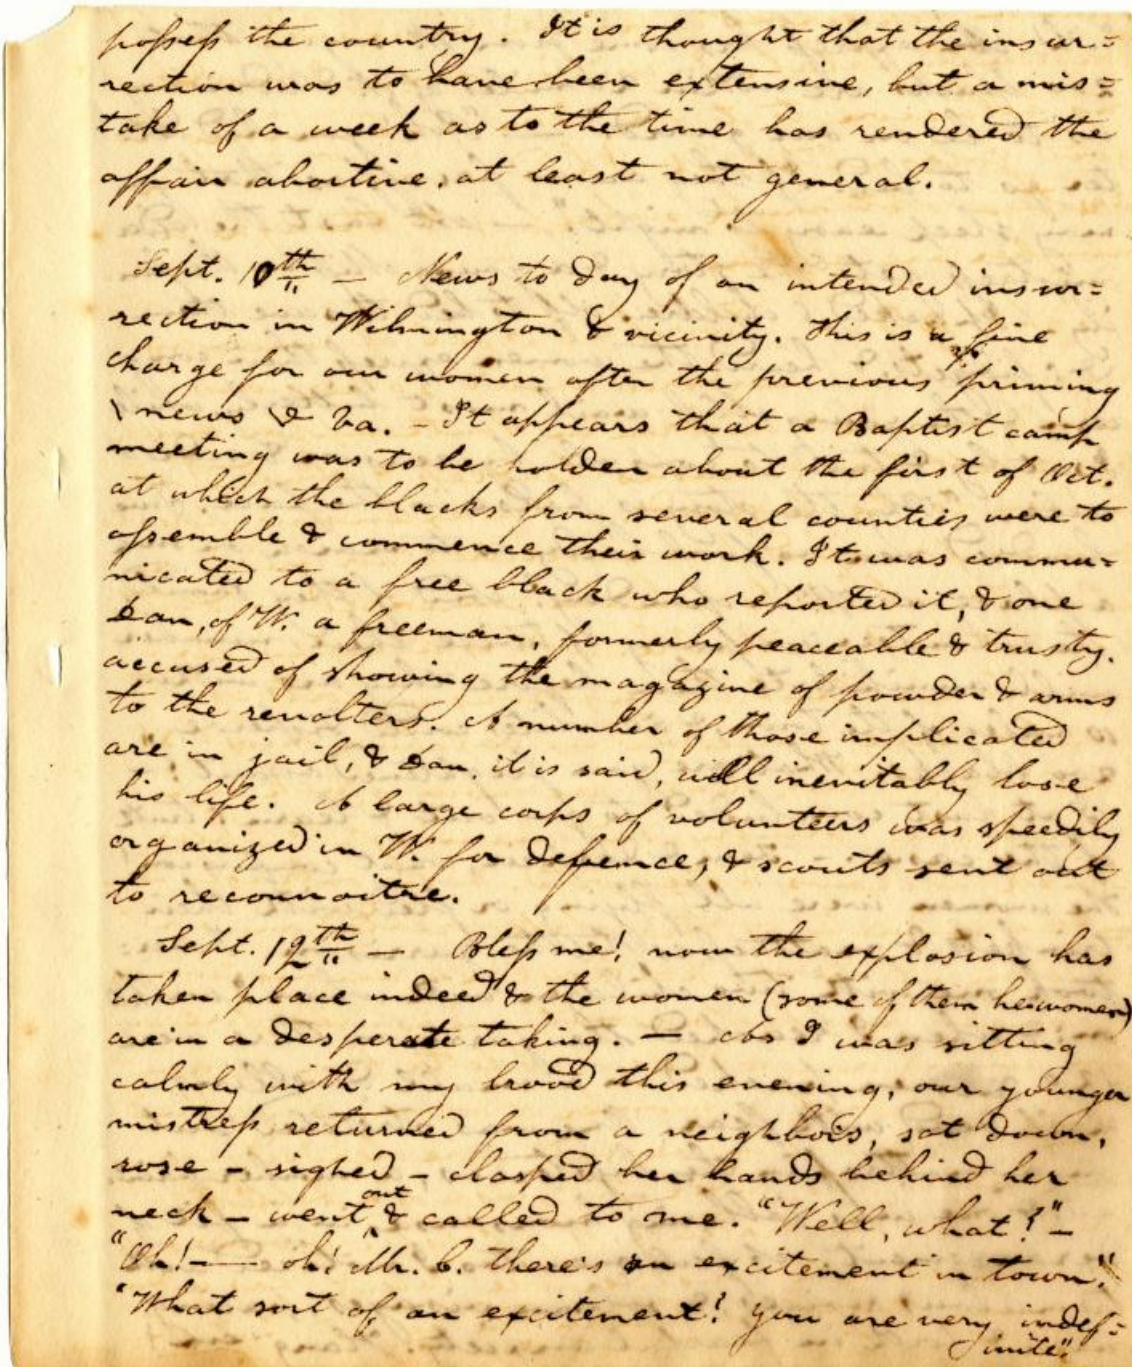 possess the country. It is thought that the insur=
rection was to have been extensive, but a mis=
take of a week as to the time has rendered the
affair abortive, at least not general.
Sept. 10th — News to day of an intended insur=
rection in Wilmington & vicinity. This is a fine
charge for our women after the previous priming
news & Va. - It appears that a Baptist camp
meeting was to be holden about the first of Oct.
at which the blacks from several counties were to
assemble & commence their work. It was commu=
nicated to a free black who reported it, & one
Dan, of W. a freeman, formerly peaceable & trusty,
accused of showing the magazine of powder & arms
to the revolters. A number of those implicated
are in jail, & Dan, it is said, will inevitably lose
his life. A large corps of volunteers was speedily
organized in W. for defence, & scouts sent out
to reconnoitre.
Sept. 12th — Bless me! now the explosion has
taken place indeed & the women (some of them he-women)
are in a desperate taking. — As I was sitting
calmly with my brood this evening, our younger
mistress returned from a neighbors, sat down,
rose - sighed - clasped her hands behind her
neck - went out & called to me. "Well, what?" -
"Oh! — oh! Mr. C. there's an excitement in town."
"What sort of an excitement? you are very indef=
inite."